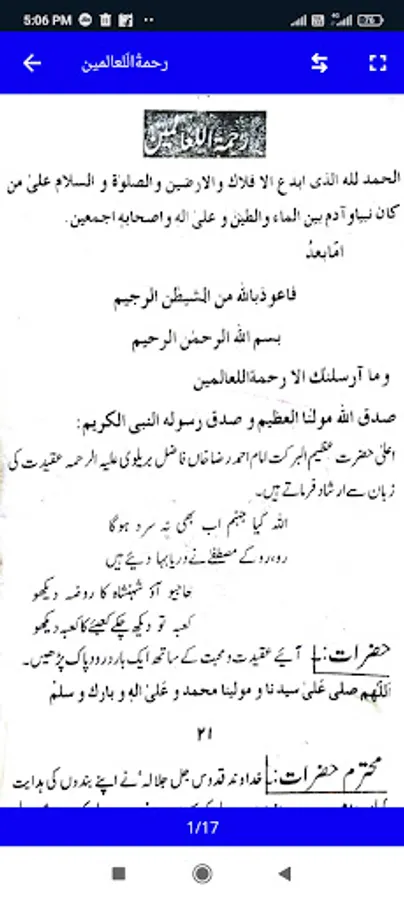 5:06 PM
76
رحمۃ اللعالمین
رحمۃ اللعالمین
الحمد لله الذی ابدع الا فلاک والارضین والصلوٰة و السلام علیٰ من
کان نبیاو آدم بین الماء والطین و علیٰ اله واصحابهٖ اجمعین.
امّابعدُ
فاعو ذبالله من الشیطٰن الرجیم
بسم الله الرحمٰن الرحیم
وما آرسلنٰک الا رحمةاللعالمین
صدق الله مولٰنا العظیم و صدق رسوله النبی الکریم:
اعلیٰ حضرت عظیم البرکت امام احمد رضا خاں فاضل بریلوی علیہ الرحمہ عقیدت کی
زبان سے ارشاد فرماتے ہیں۔
اللہ کیا جہنم اب بھی نہ سرد ہوگا
رو، رو کے مصطفٰے نے دریا بہا دیئے ہیں
حاجیو آؤ شہنشاہ کا روضہ دیکھو
کعبہ تو دیکھ چکے کعبے کا کعبہ دیکھو
حضرات:۔ آیئے عقیدت و محبت کے ساتھ ایک بار درود پاک پڑھیں۔
اللّٰهم صلی علیٰ سیدنا و مولینا محمد و علیٰ اله و بارک و سلم
۲۱
محترم حضرات:۔ خداوند قدوس جل جلالہ نے اپنے بندوں کی ہدایت
1/17